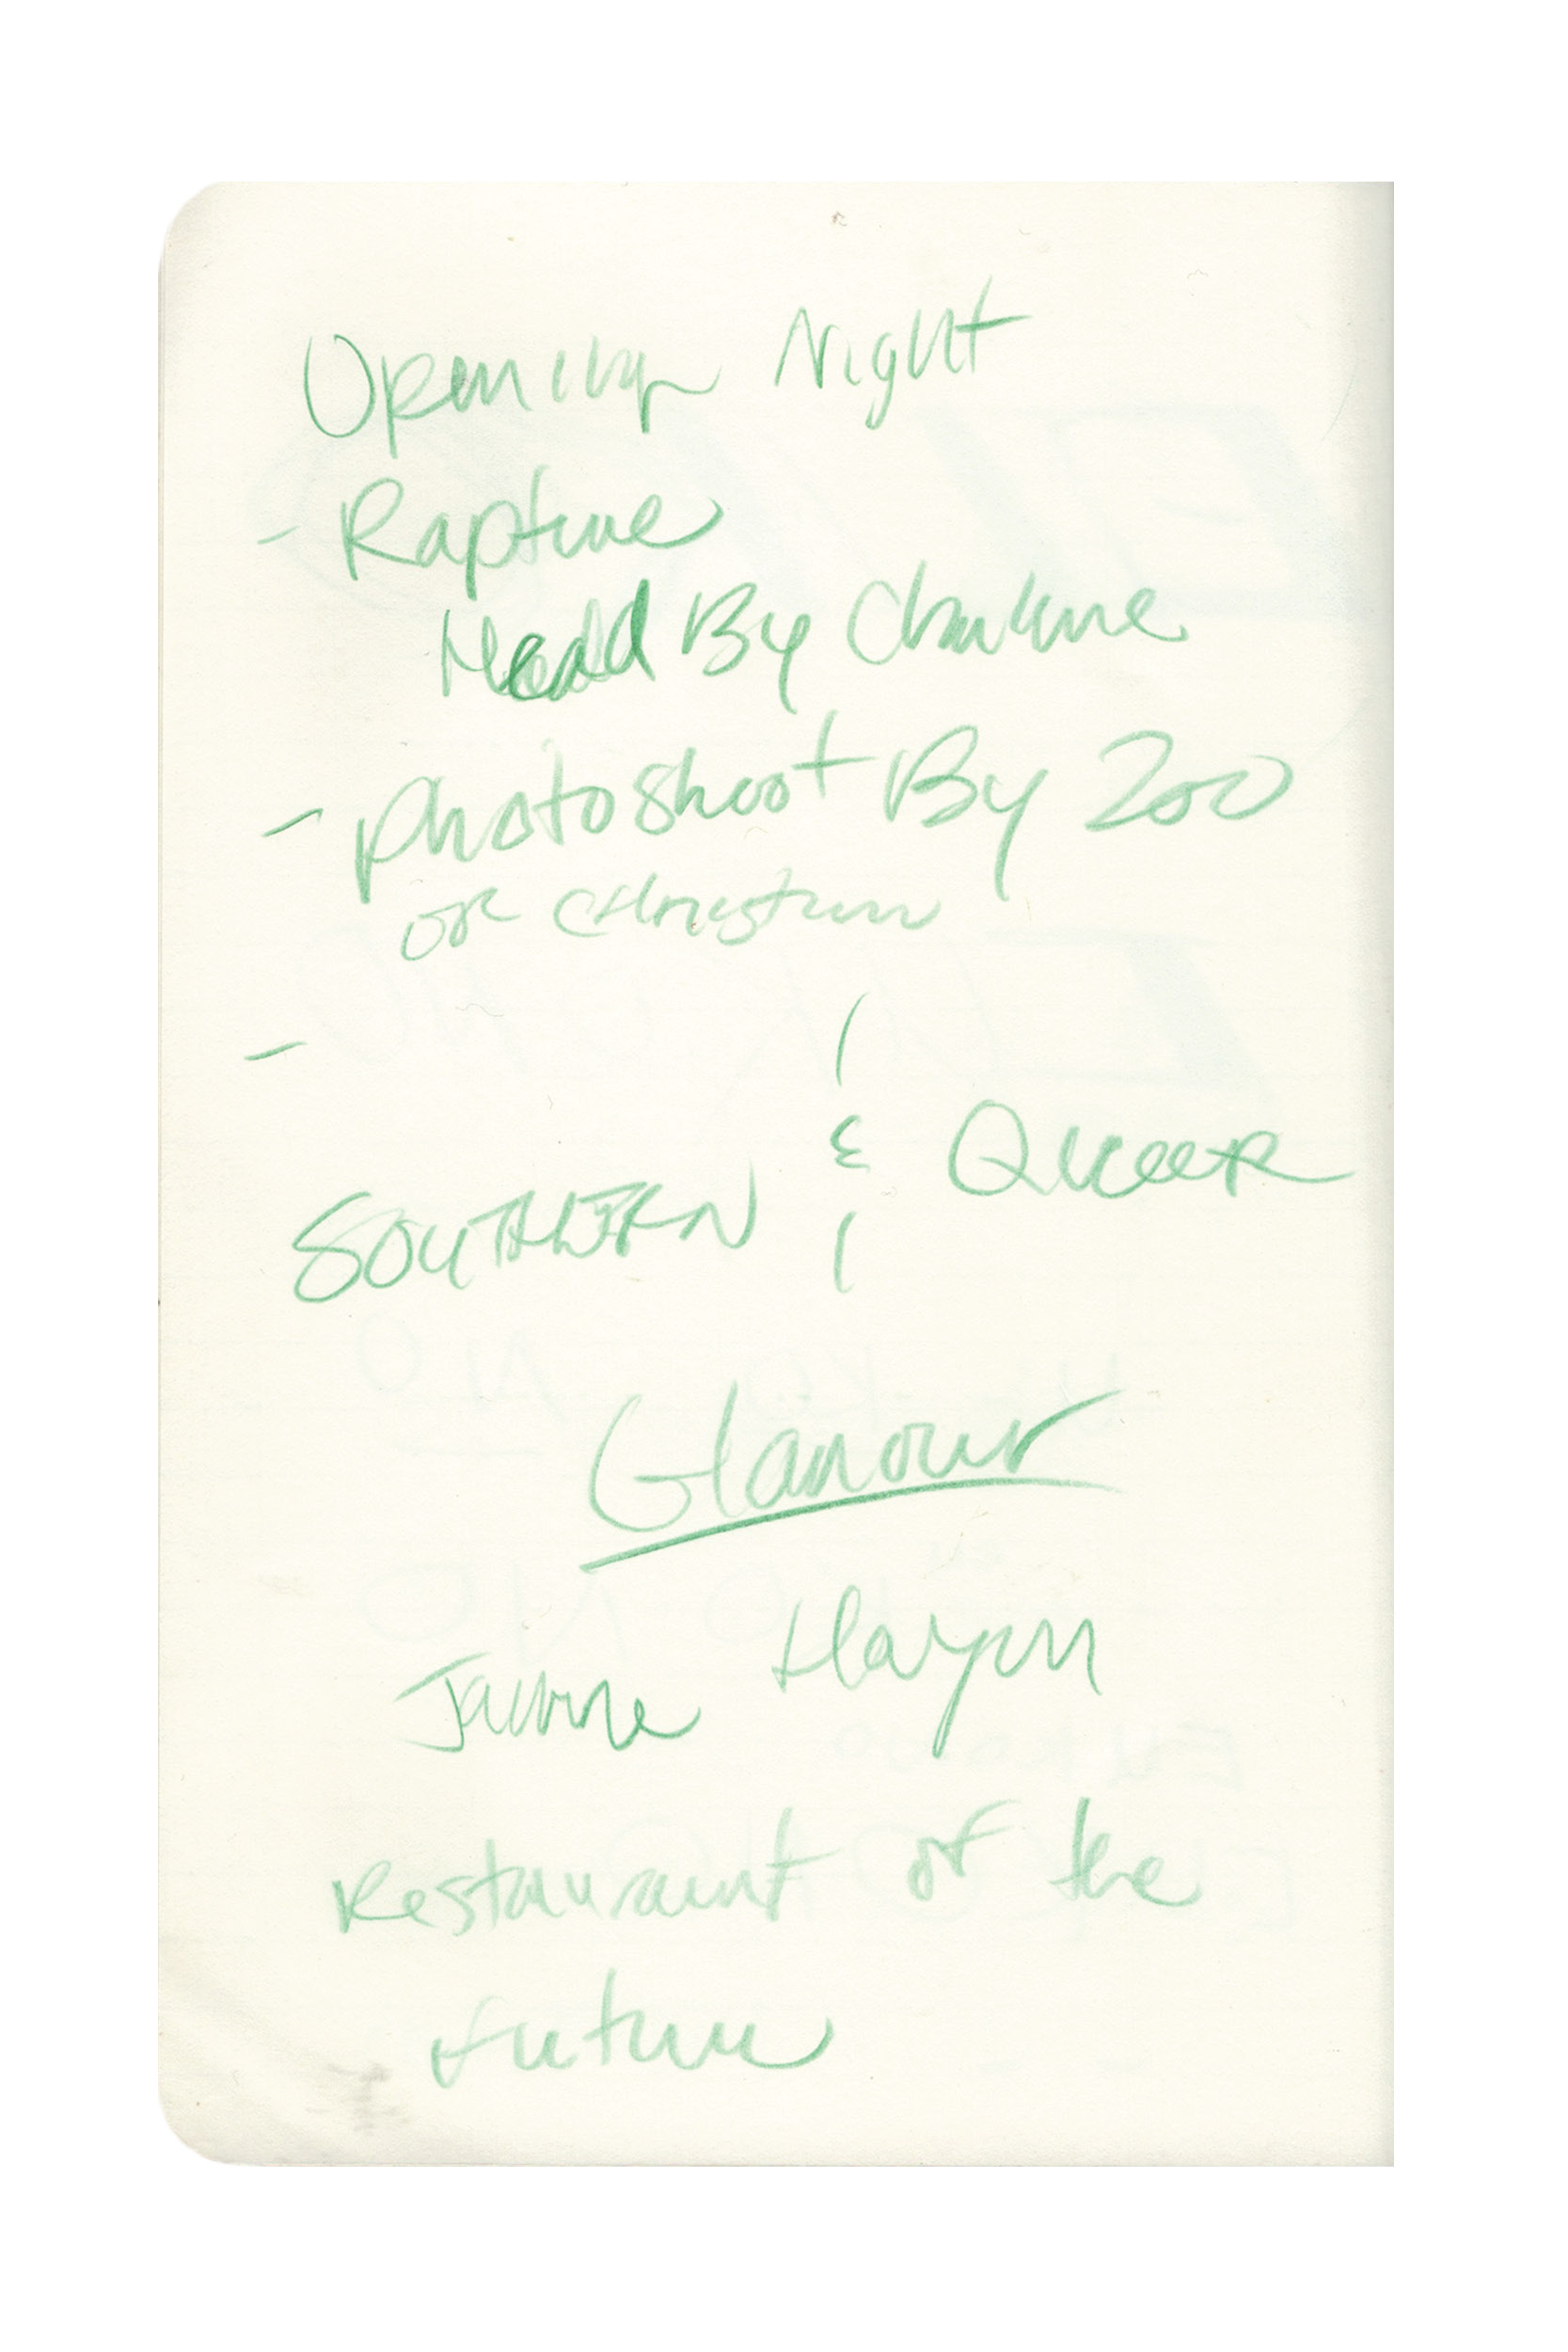 Opening Night
- Rapture
Read By Charlene
- Photoshoot By Zoo
or Christian
-
SOUTHERN & QUEER
Glamour
Hayen
Restaurant of the
future